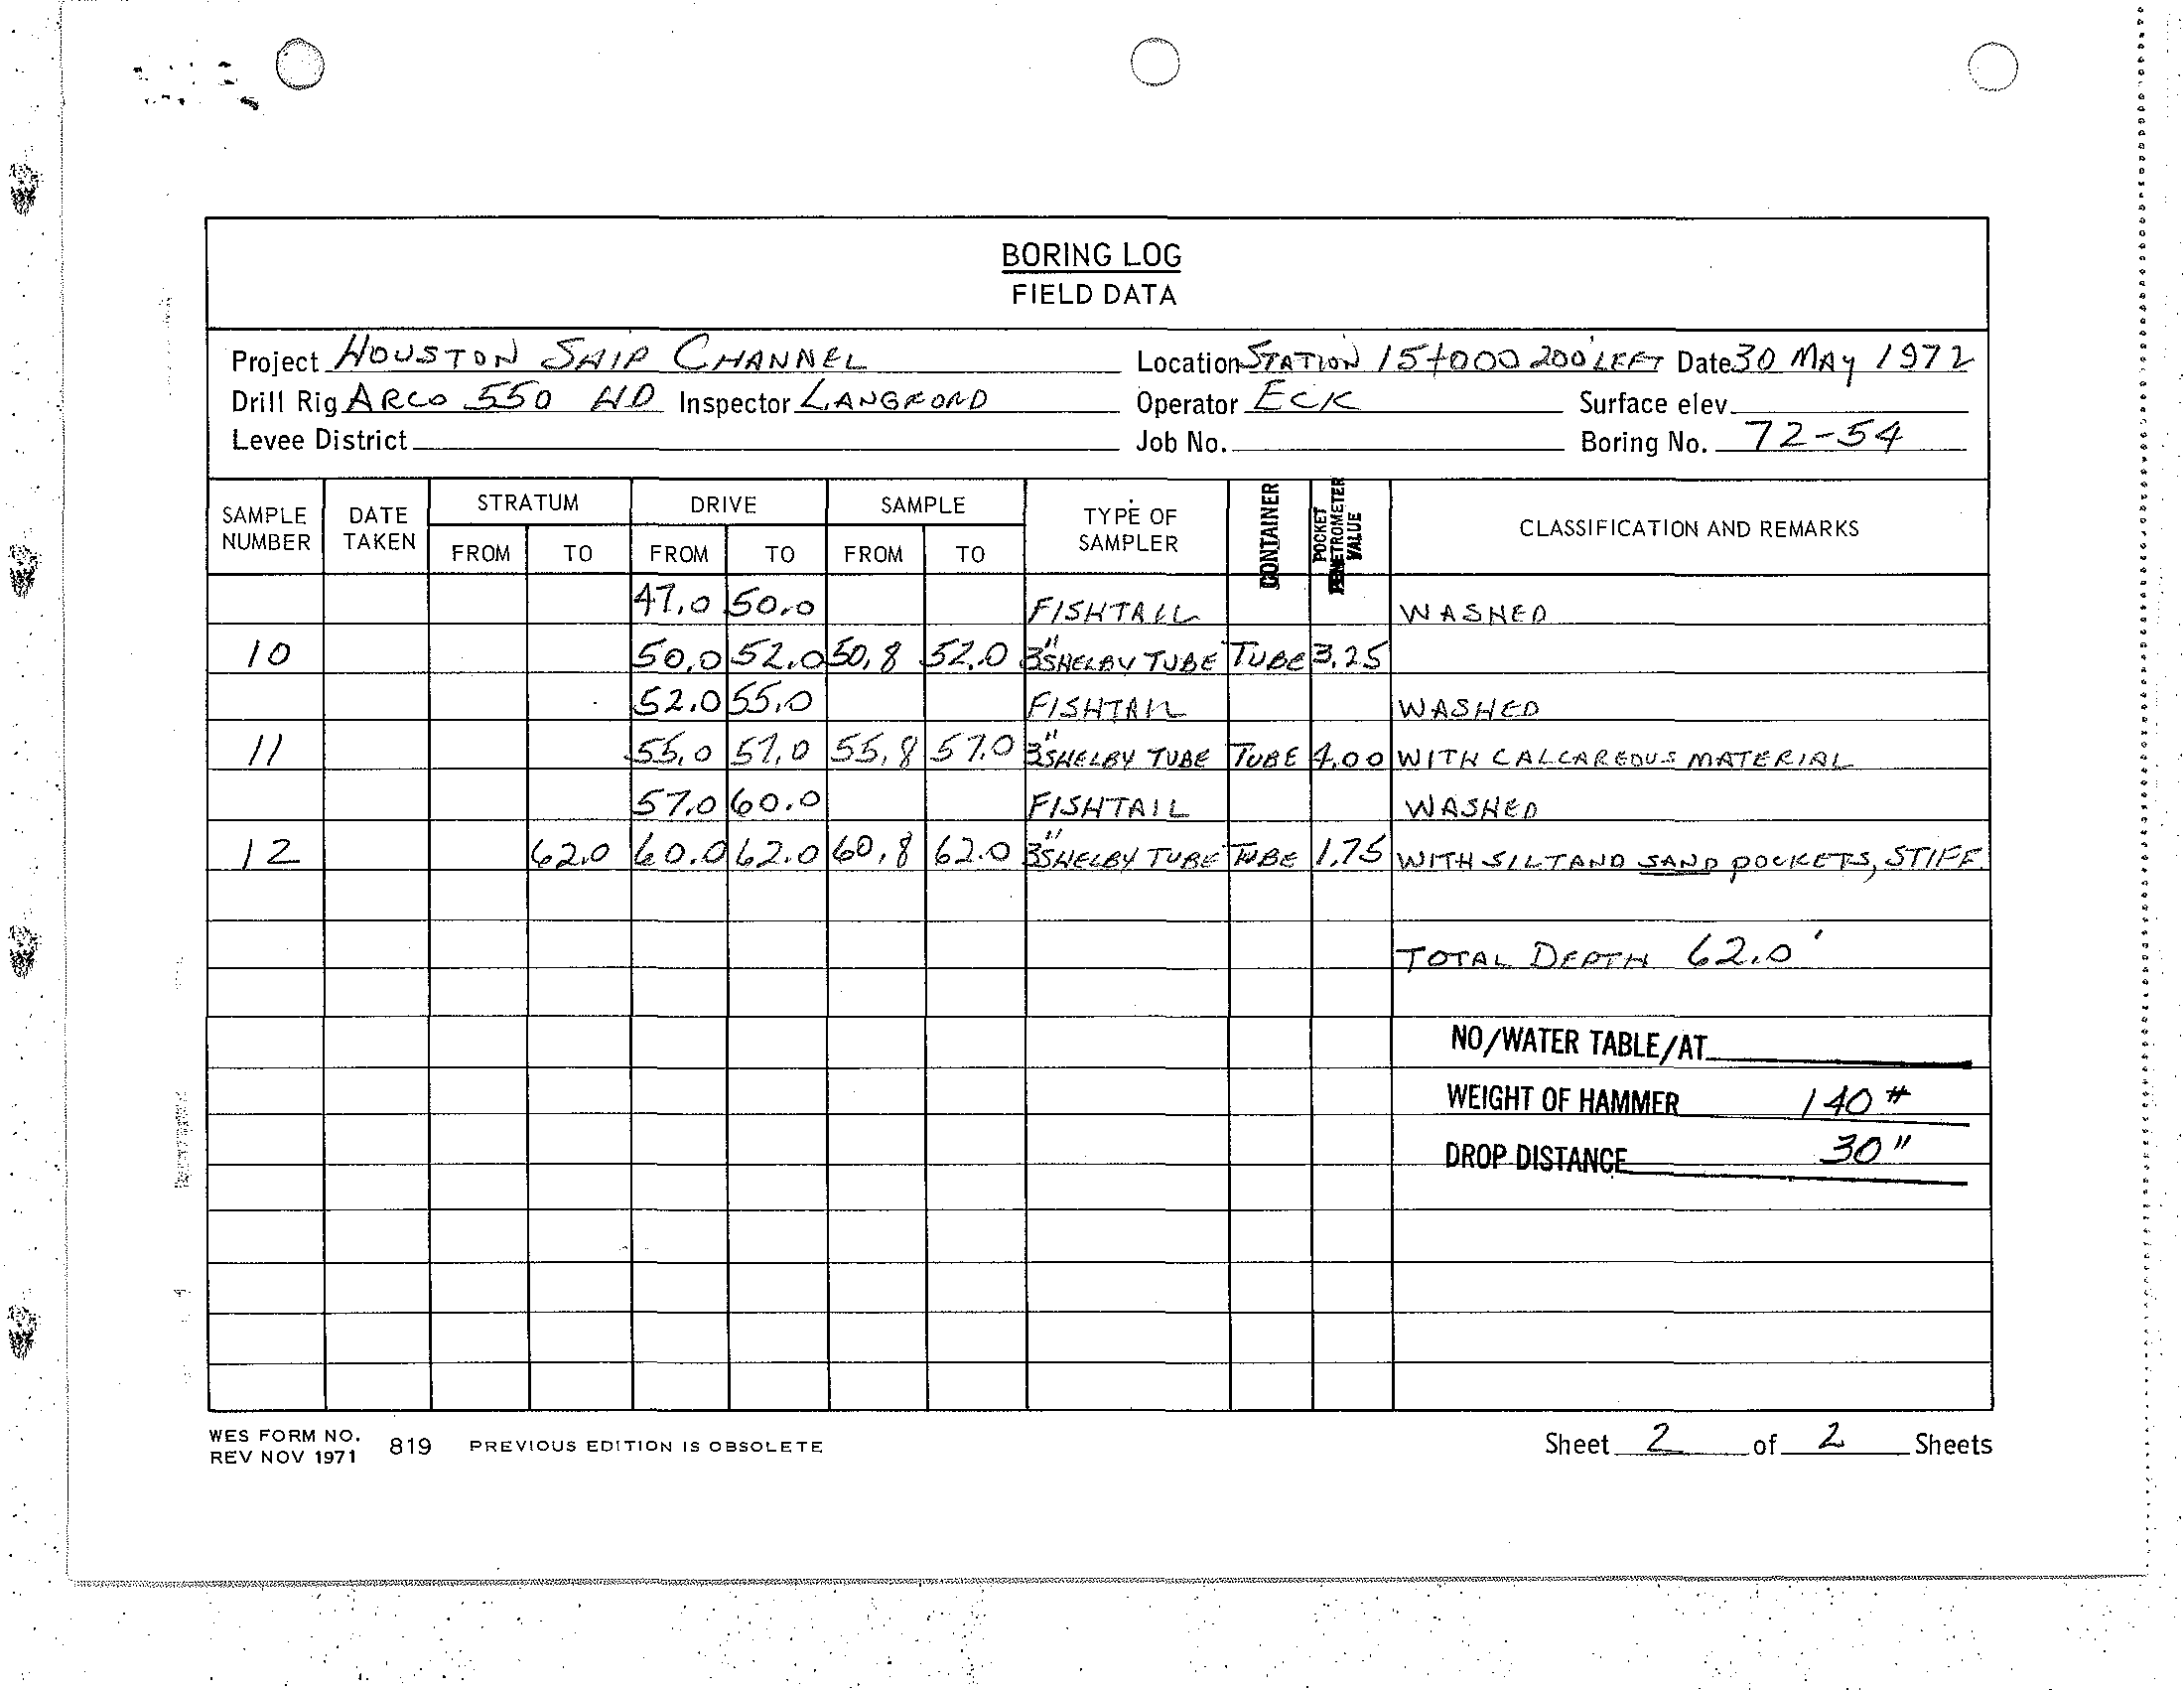 BORING LOG
FIELD DATA
Project HOUSTON SHIP CHANNEL Location STATION 15+000 200' LEFT Date 30 MAY 1972
Drill Rig ARCO 550 HD Inspector LANGFORD Operator ECK Surface elev.
Levee District Job No. Boring No. 72-54
SAMPLE NUMBER DATE TAKEN STRATUM FROM TO DRIVE FROM TO SAMPLE FROM TO TYPE OF SAMPLER CONTAINER POCKET PENETROMETER VALUE CLASSIFICATION AND REMARKS
47.0 50.0 FISHTAIL WASHED
10 50.0 52.0 50.8 52.0 3" SHELBY TUBE TUBE 3.25
52.0 55.0 FISHTAIL WASHED
11 55.0 57.0 55.8 57.0 3" SHELBY TUBE TUBE 4.00 WITH CALCAREOUS MATERIAL
57.0 60.0 FISHTAIL WASHED
12 62.0 60.0 62.0 60.8 62.0 3" SHELBY TUBE TUBE 1.75 WITH SILT AND SAND POCKETS, STIFF.
TOTAL DEPTH 62.0'
NO/WATER TABLE/AT
WEIGHT OF HAMMER 140 #
DROP DISTANCE 30"
WES FORM NO. 819 PREVIOUS EDITION IS OBSOLETE
REV NOV 1971
Sheet 2 of 2 Sheets